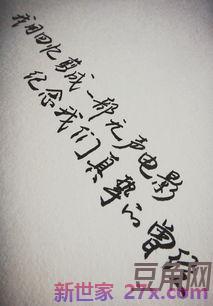 我用回忆剪成一部无声电影
纪念我们真挚的曾经
豆角网
新世家 27x.com